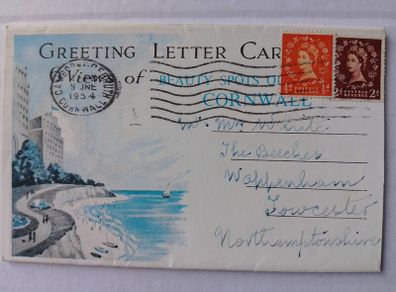 GREETING LETTER CAR
Views of
BEAUTY SPOTS O
CORNWALL
CAMBORNE-REDRUTH
9 JNE
1954
CORNWALL
½d ½d
POSTAGE REVENUE
2d 2d
POSTAGE REVENUE
Mr Mrs White
The Beeches
Wappenham
Towcester
Northamptonshire